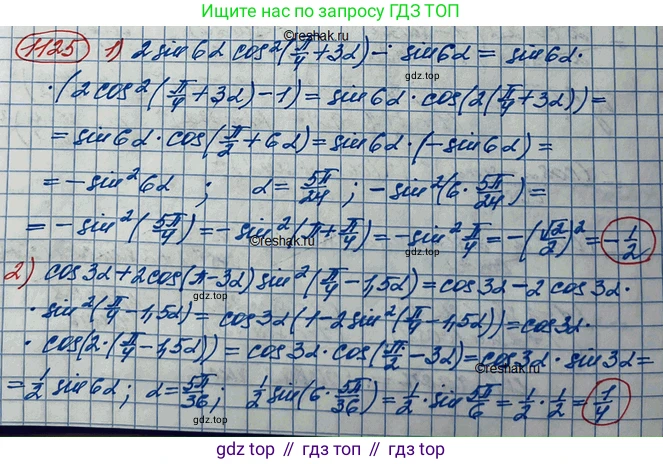 Ищите нас по запросу ГДЗ ТОП
1125 1) 2 sin6α cos²(π/4+3α) - sin6α = sin6α·
©reshak.ru
gdz.top
·(2cos²(π/4+3α)-1) = sin6α·cos(2(π/4+3α)) =
= sin6α·cos(π/2+6α) = sin6α·(-sin6α) =
= -sin²6α ; α = 5π/24 ; -sin²(6·5π/24) =
gdz.top
= -sin²(5π/4) = -sin²(π+π/4) = -sin²π/4 = -(√2/2)² = -1/2
©reshak.ru
2) cos3α+2cos(π-3α) sin²(π/4-1,5α) = cos3α-2cos3α·
gdz.top
·sin²(π/4-1,5α) = cos3α(1-2sin²(π/4-1,5α)) = cos3α·
·cos(2·(π/4-1,5α)) = cos3α·cos(π/2-3α) = cos3α·sin3α =
©reshak.ru
gdz.top
= 1/2 sin6α; α = 5π/36; 1/2 sin(6·5π/36) = 1/2·sin5π/6 = 1/2·1/2 = 1/4
gdz.top
gdz top // гдз топ // gdz.top // гдз.топ